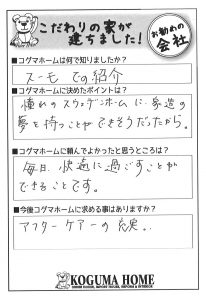 こだわりの家が
建ちました!
お勧めの
会社
■コグマホームは何で知りましたか?
スーモ での紹介
■コグマホームに決めたポイントは?
憧れのスウェーデンホームに、家造の
夢を持つことができそうだったから。
■コグマホームに頼んでよかったと思うところは?
毎日、快適に過ごすことが
できることです。
■今後コグマホームに求める事はありますか?
アフターケアーの充実。
KOGUMA HOME